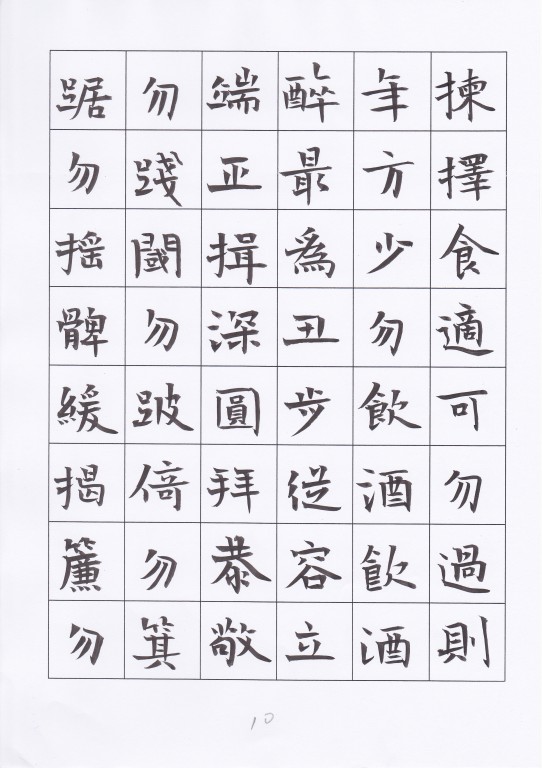 揀擇食適可勿過則
年方少勿飲酒飲酒
醉最爲丑步從容立
端正揖深圓拜恭敬
勿踐閾勿跛倚勿箕
踞勿搖髀緩揭簾勿
10